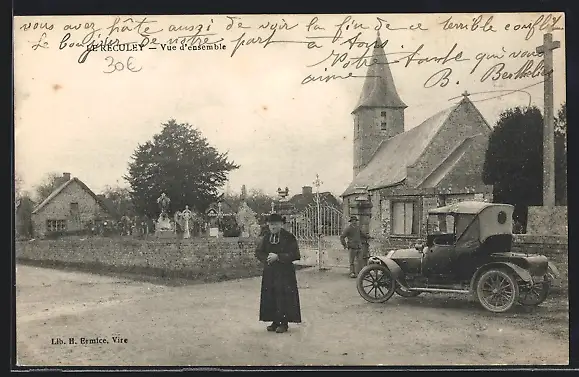 vous avez hâte aussi de voir la fin de ce terrible conflit
Le de notre part à tous
LE RECULEY — Vue d'ensemble
30€
Votre tante qui vous
aime
B. Berthelin
Lib. H. Ermice, Vire